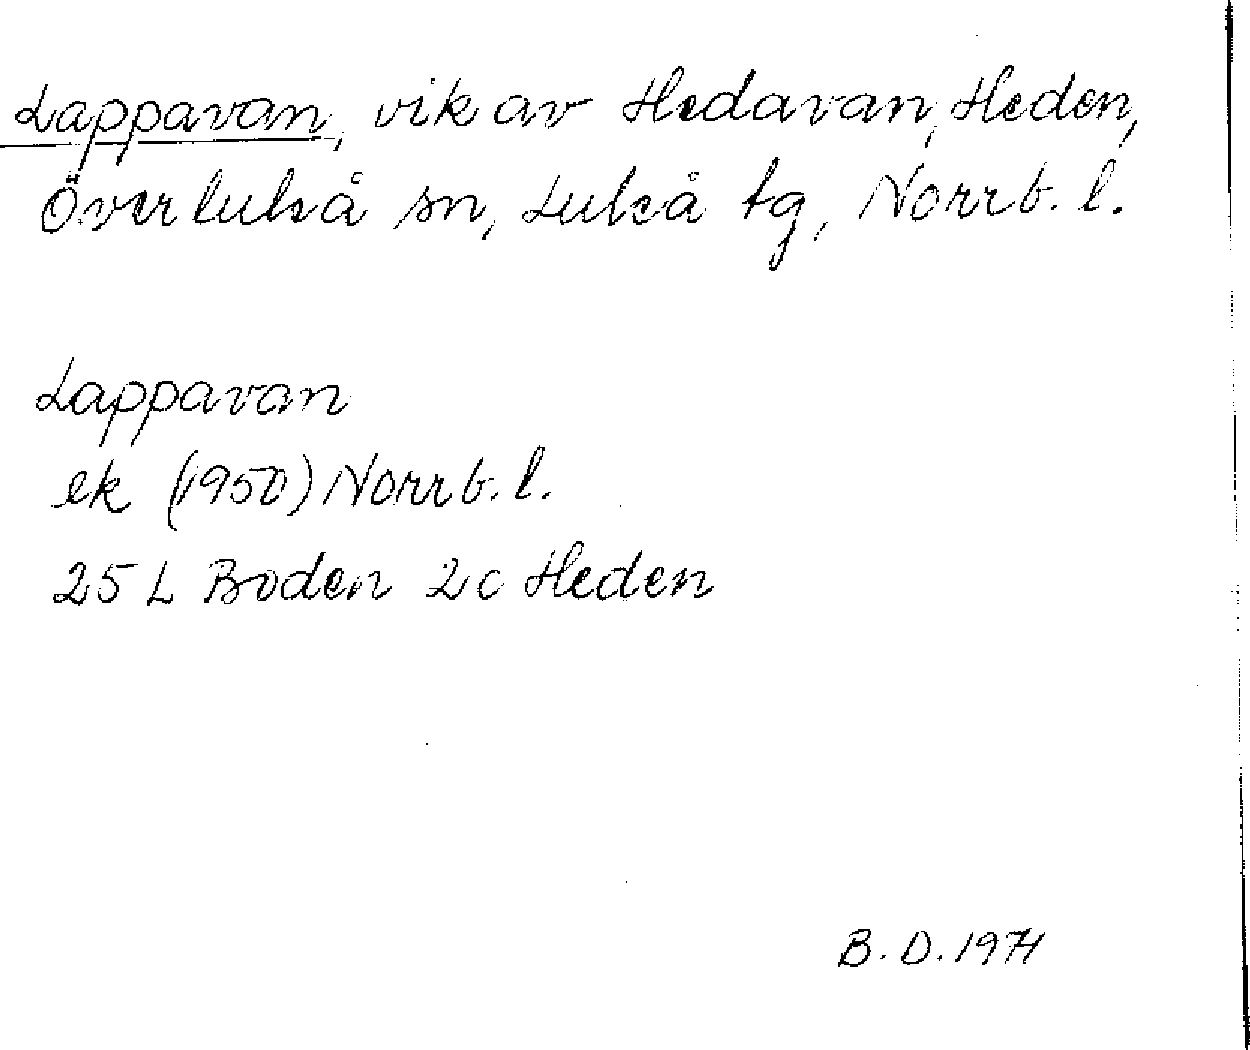 Lappavan, vik av Hedavan, Heden,
Överluleå sn, Luleå tg, Norrb. l.
Lappavan
ek (1950) Norrb. l.
25 L Boden 2c Heden
B. D. 1971